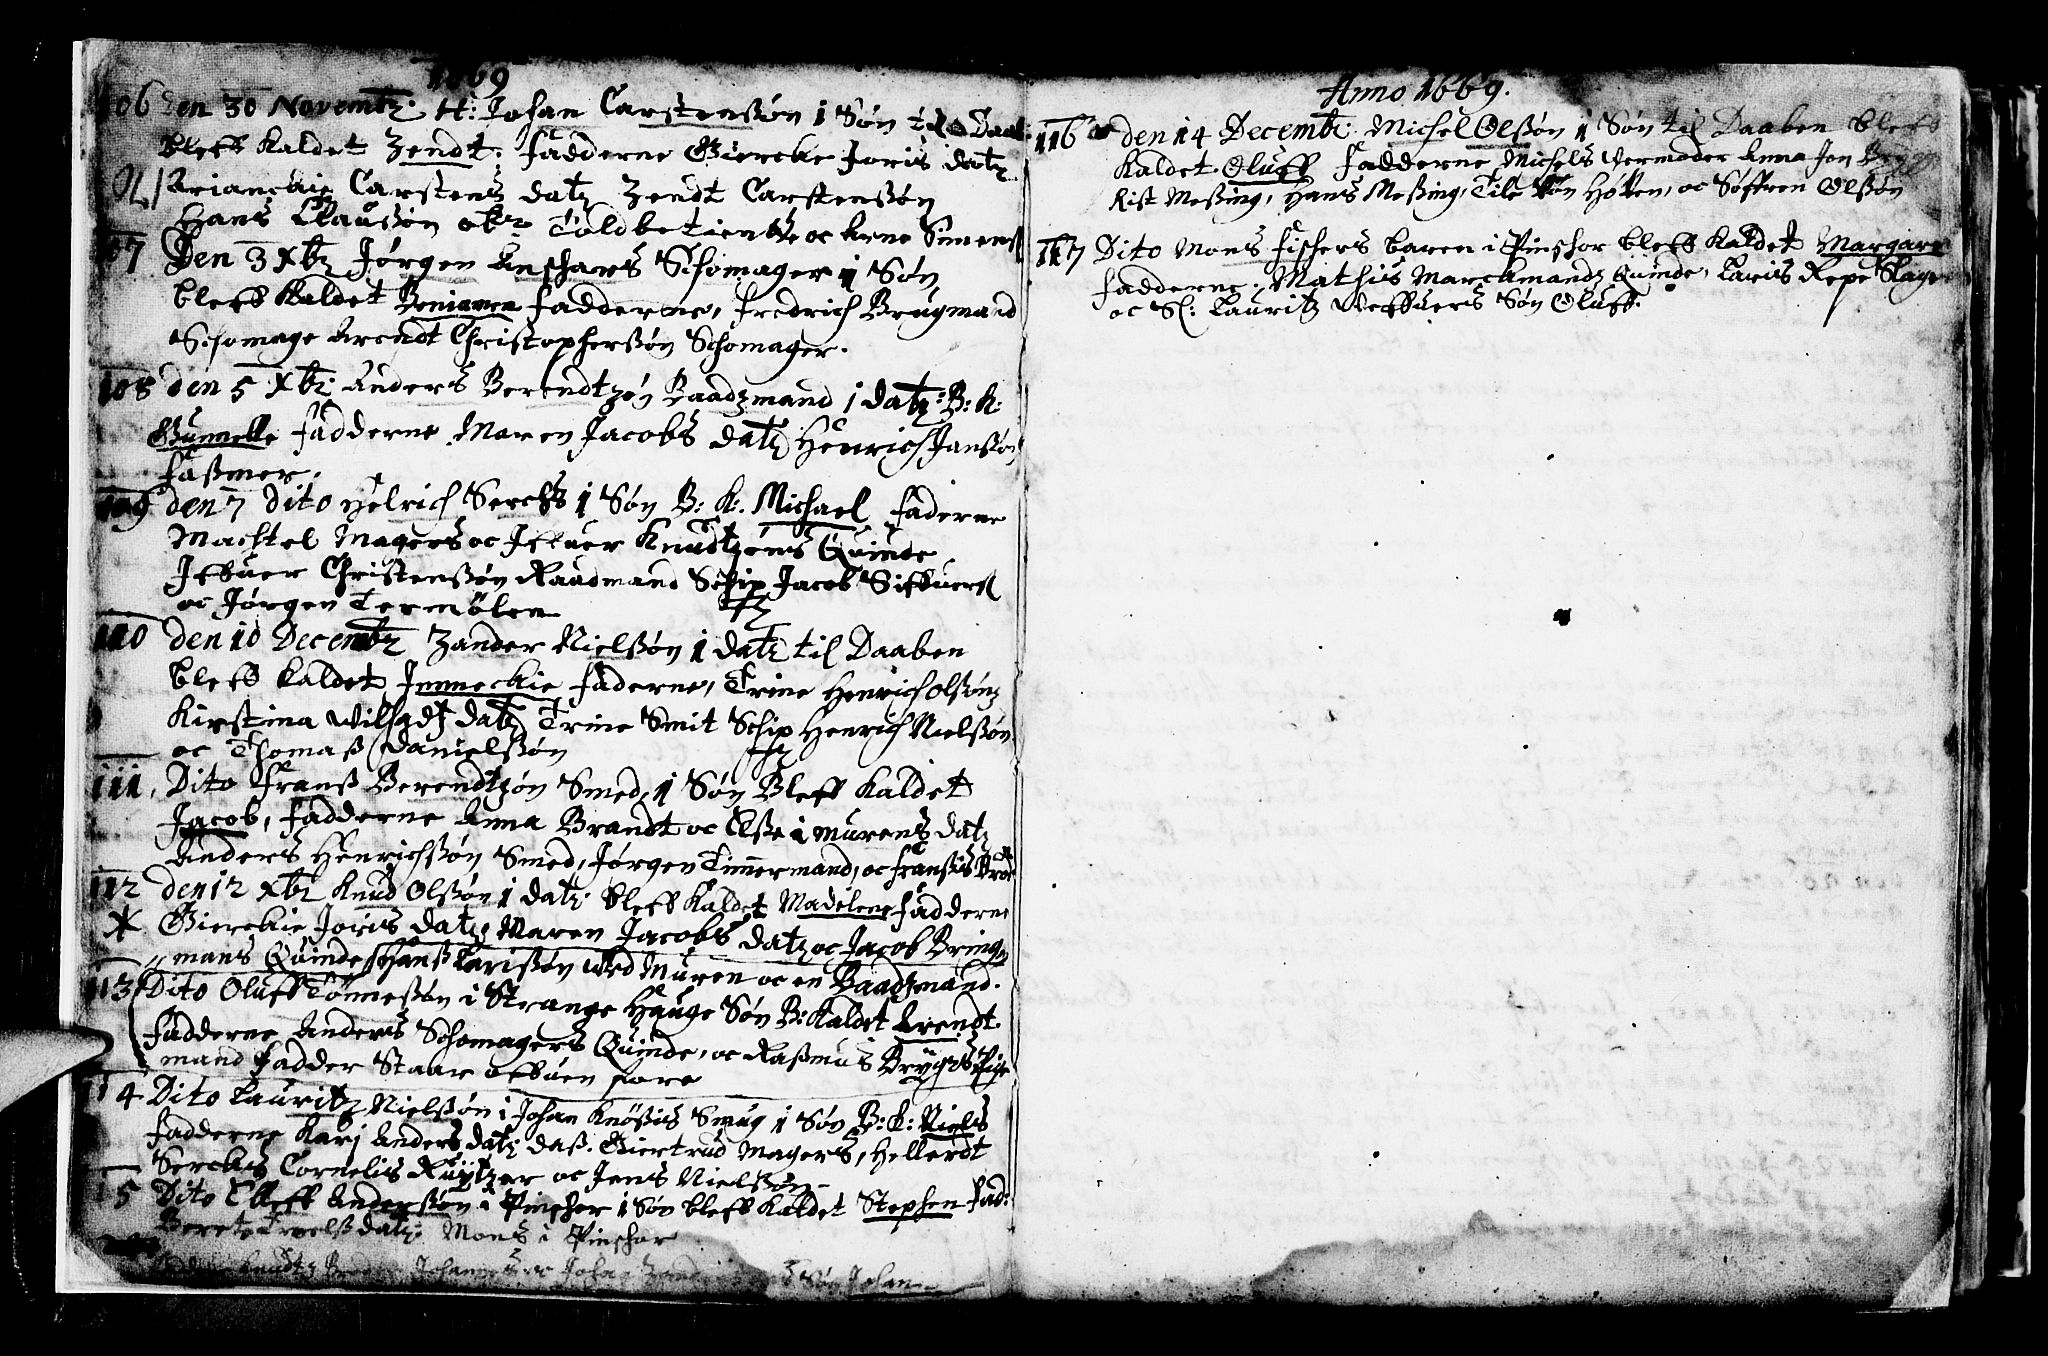 1669
106 den 30 Novembr: H: Johan Carstenssøn 1 Søn til Daab
bleff kaldet Zendt. fadderne Giercke Joris datr
Carstens datr Zendt Carstenssøn
Hans Claussøn Toldbetiente oc Arne Simens
107 Den 3 Xbr Jørgen Anschars Schomager 1 Søn,
bleff kaldet Beniamen fadderne, fredrich Brugmand
Schomage Arendt Christopherssøn Schomager.
108 den 5 Xbr: Anders Berendtzøn Baadzmand 1 datr: B: K:
Gunnelle fadderne Maren Jacobs datr Henrich Janssøn
fassmer.
109 den 7 Dito Helrich Serchs 1 Søn B: K: Michael faderne
Machtel Magers oc Iffuer Knudtzøns Quinde
Iffuer Christenssøn Raadmand Schip Jacob Siffuers
oc Jørgen Termølen
110 den 10 Decembr Zander Nielssøn 1 datr til Daaben
bleff kaldet Immeckie faderne, Trine Henrich olssøns
Kirstina Wilhadt datr Trine Smit Schip Henrich Nielssøn
oc Thomass Danielssøn
111, Dito Franss Berendtzøn Smed, 1 Søn Bleff kaldet
Jacob, fadderne Anna Brandt oc Else i murens datr
Anders Henrichssøn Smed, Jørgen Timmermand, oc fransis Bror
112 den 12 Xbr Knud Olssøn 1 datr: bleff kaldet Madelene fadderne
* Gierckie Joris datr, Maren Jacobs datr oc Jacob Bring
mans Quinde Hanss Larissøn ved Muren oc en Baadzmand.
113 Dito Oluff Tønnessøn i Strange Hauge Søn B: kaldet Arendt.
fadderne Anders Schomagers Quinde, oc Rassmus Brygers Pige
mand fadder Staar offuen fore
114 Dito Lauritz Nielssøn i Johan Knösis Smug 1 Søn B: K: Niels
fadderne Kari Anders datr dass. Giertrud Magers, Hellerdt
Serckis Cornelis Ruytzer oc Jens Nielssøn
15 Dito Elleff Anderssøn i Pinschor 1 Søn bleff kaldet Stephen fad:
Berete Troelss datr: Mons i Pinschor
Johan
Anno 1669.
116 den 14 Decembr: Michel Olssøn 1 Søn til Daaben bleff
kaldet Oluff fadderne Michels Vermoder Anna Jon
Kist Messing, Hans Messing, Tile Von Høtten, oc Søffren Olssøn
117 Dito Mons fischers baren i Pinschor bleff kaldet Margare
fadderne. Mathis Marckmands Quinde, Laris Repe Slager
oc Sl: Lauritz Veffuers Søn Oluff.